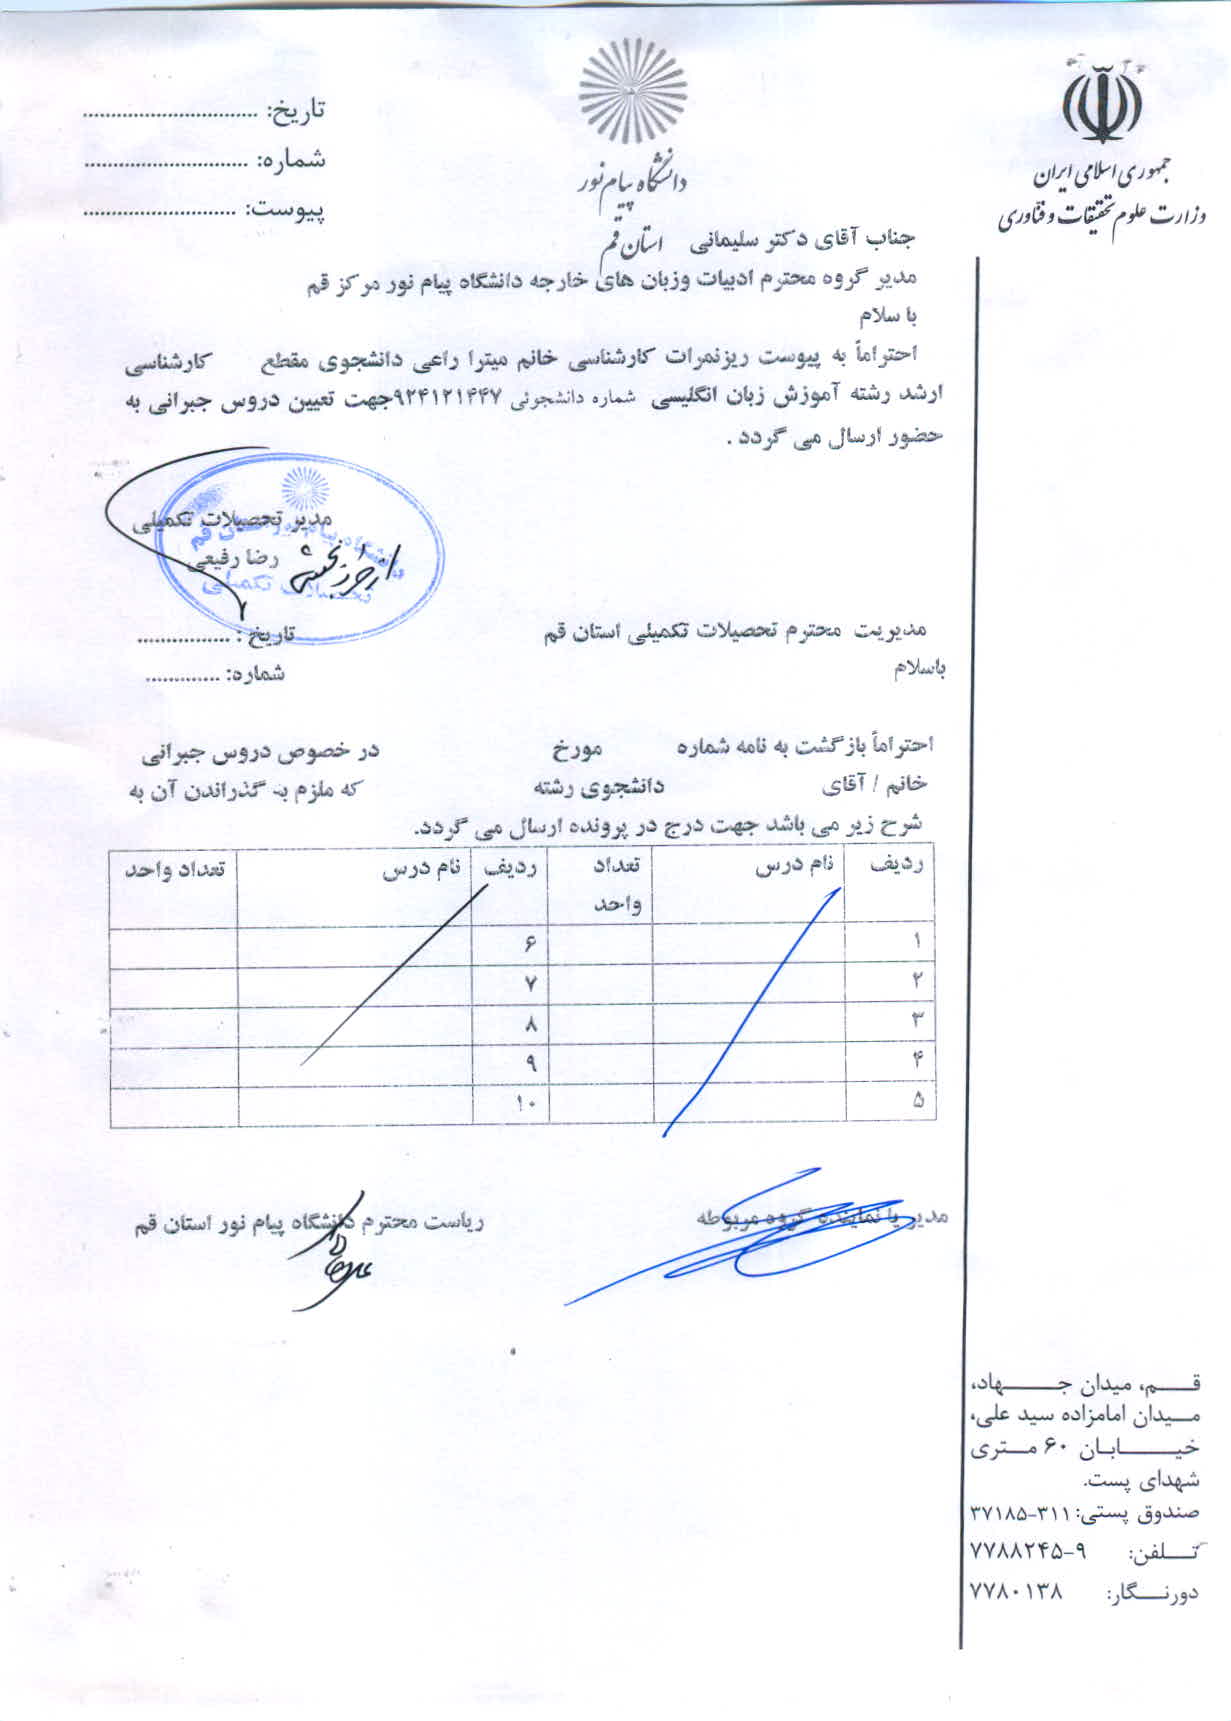 جمهوری اسلامی ایران
وزارت علوم تحقیقات و فناوری
دانشگاه پیام نور
استان قم
تاریخ: ..............................
شماره: ............................
پیوست: ..........................
جناب آقای دکتر سلیمانی
مدیر گروه محترم ادبیات وزبان های خارجه دانشگاه پیام نور مرکز قم
با سلام
احتراماً به پیوست ریزنمرات کارشناسی خانم میترا راعی دانشجوی مقطع کارشناسی
ارشد رشته آموزش زبان انگلیسی شماره دانشجوئی ۹۲۴۱۲۱۴۴۷جهت تعیین دروس جبرانی به
حضور ارسال می گردد .
مدیر تحصیلات تکمیلی
رضا رفیعی
دانشگاه پیام نور استان قم
تحصیلات تکمیلی
مدیریت محترم تحصیلات تکمیلی استان قم
تاریخ : ................
باسلام
شماره: .............
احتراماً بازگشت به نامه شماره مورخ در خصوص دروس جبرانی
خانم / آقای دانشجوی رشته که ملزم به گذراندن آن به
شرح زیر می باشد جهت درج در پرونده ارسال می گردد.
ردیف نام درس تعداد واحد ردیف نام درس تعداد واحد
۱ ۶
۲ ۷
۳ ۸
۴ ۹
۵ ۱۰
مدیر یا نماینده گروه مربوطه
ریاست محترم دانشگاه پیام نور استان قم
قم، میدان جهاد،
میدان امامزاده سید علی،
خیابان ۶۰ متری
شهدای پست.
صندوق پستی: ۳۱۱-۳۷۱۸۵
تلفن: ۹-۷۷۸۸۲۴۵
دورنگار: ۷۷۸۰۱۳۸